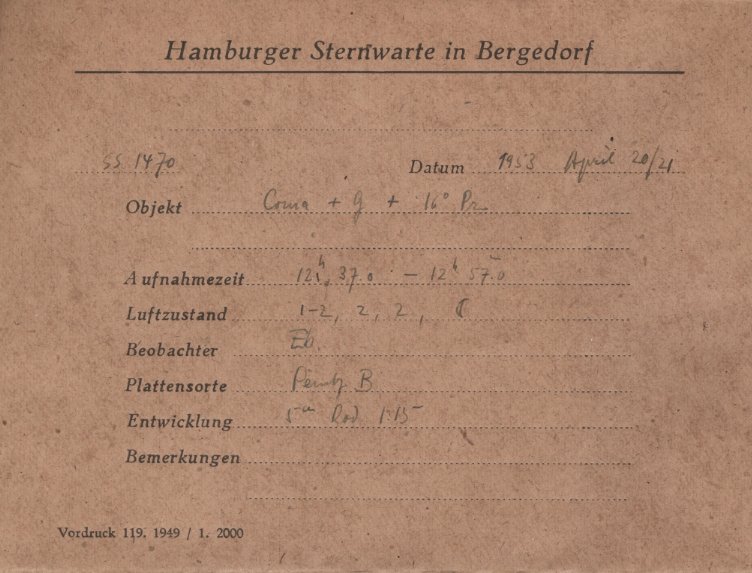 Hamburger Sternwarte in Bergedorf
SS 1470 Datum 1953 April 20/21
Objekt Coma + + 16° Pr.
Aufnahmezeit 12h 37.0 - 12h 57.0
Luftzustand 1-2, 2, 2,
Beobachter
Plattensorte B
Entwicklung 5m Rod 1:15
Bemerkungen
Vordruck 119. 1949 / 1. 2000